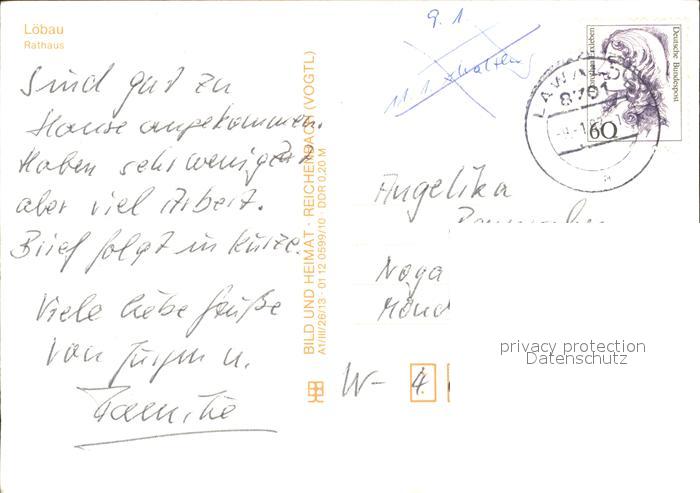 Löbau
Rathaus
Sind gut zu
Hause angekommen.
Haben sehr wenig Zeit
aber viel Arbeit.
Brief folgt in Kürze.
Viele liebe Grüße
von Jürgen u.
Familie
BILD UND HEIMAT · REICHENBACH (VOGTL)
A1/III/26/13 · 01 12 0599/10 DDR 0,20 M
9. 1.
11. 1. erhalten
Deutsche Bundespost
60
LAWALDE
8701
Angelika
Noga
Mönd
W- 4.
privacy protection
Datenschutz